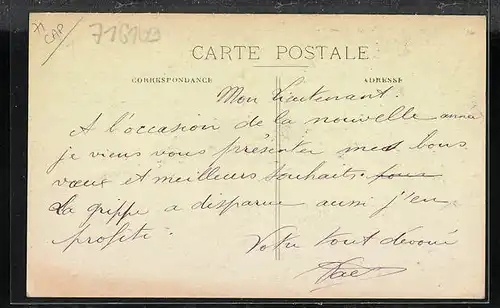 71
CAP
CARTE POSTALE
CORRESPONDANCE
ADRESSE
Mon Lieutenant.
A l'occasion de la nouvelle année
je viens vous présenter mes bons
vœux et meilleurs souhaits.
La grippe a disparue aussi j'en
profite.
Votre tout dévoué